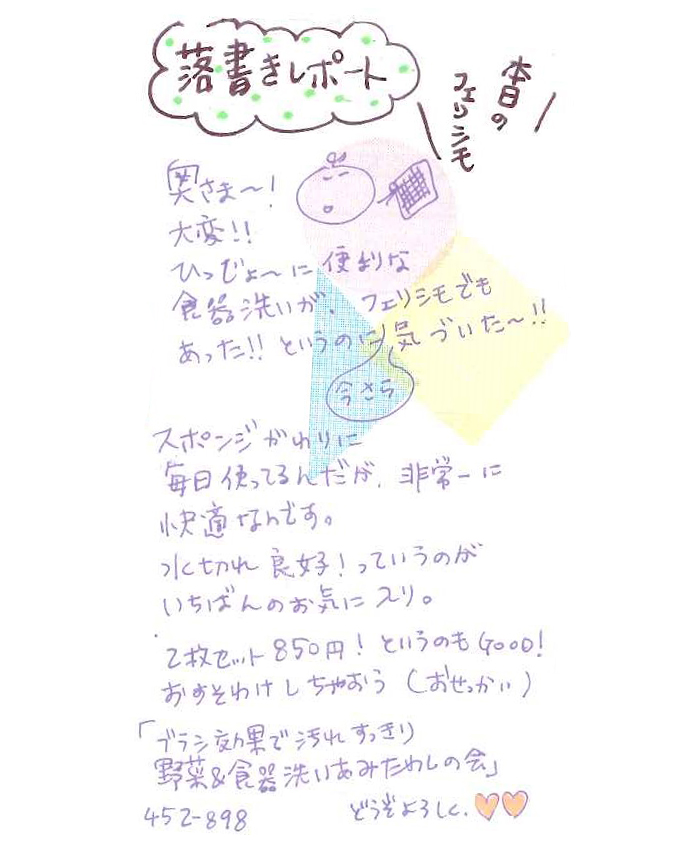 落書きレポート
本日の
フェリシモ
奥さま〜！
大変!!
ひっじょ〜に便利な
食器洗いが、フェリシモでも
あった!! というのに気づいた〜!!
今さら
スポンジがわりに
毎日使ってるんだが、非常ーに
快適なんです。
水切れ良好！っていうのが
いちばんのお気に入り。
2枚セット850円！というのもGOOD！
おすそわけしちゃおう（おせっかい）
「ブラシ効果で汚れすっきり
野菜&食器洗いあみたわしの会」
452-898
どうぞよろしく.